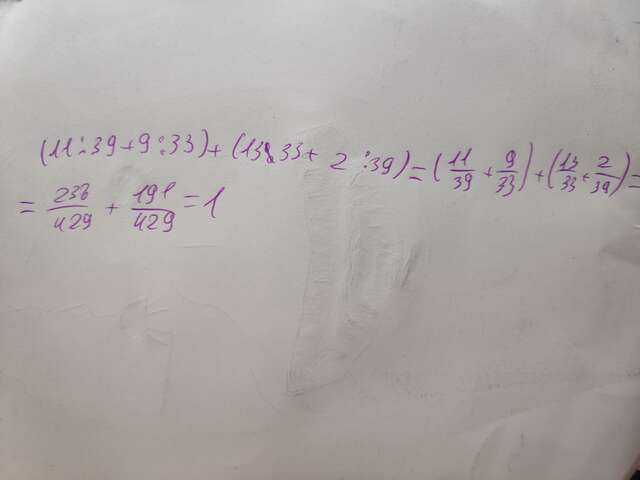 (11:39+9:33)+(13:33+2:39)=(11/39+9/33)+(13/33+2/39)=
=238/429+191/429=1